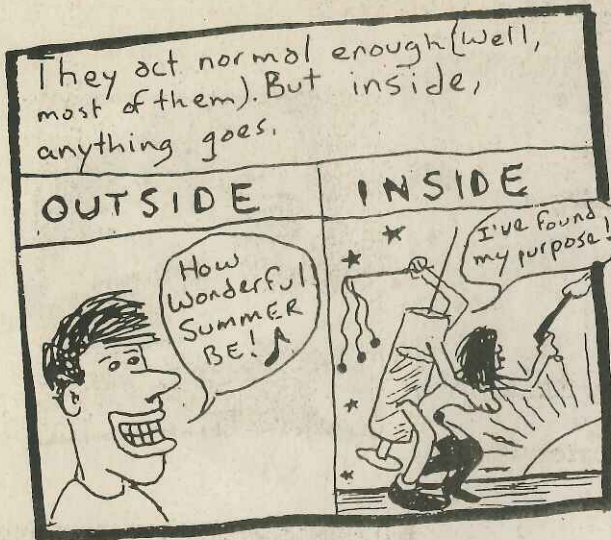 They act normal enough (Well,
most of them). But inside,
anything goes.
OUTSIDE
INSIDE
How
Wonderful
SUMMER
BE!
I've found
my purpose!